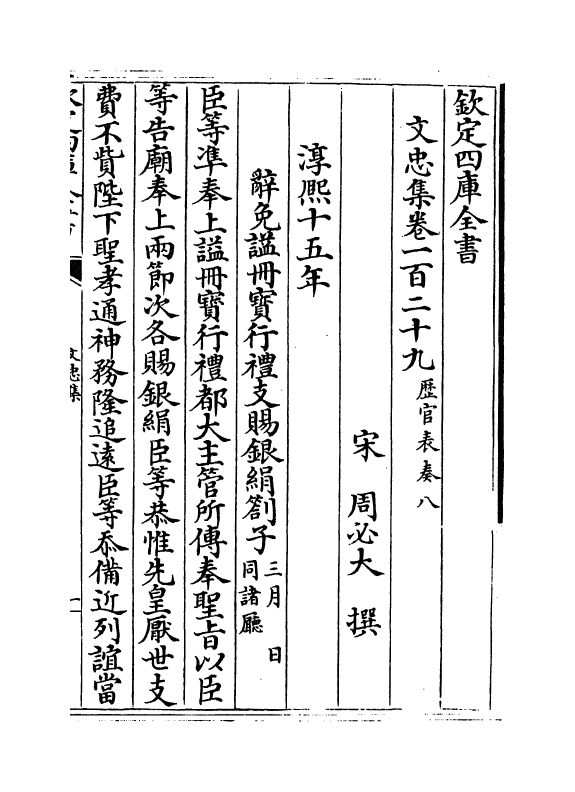 欽定四庫全書
文忠集卷一百二十九 歴官表奏八
宋 周必大 撰
淳熙十五年
辭免諡冊寳行禮支賜銀絹劄子 三月 日 同諸廳
臣等準奉上諡冊寳行禮都大主管所傳奉聖旨以臣
等告廟奉上兩節次各賜銀絹臣等恭惟先皇厭世支
費不貲陛下聖孝通神務隆追逺臣等忝備近列誼當
文忠集
一